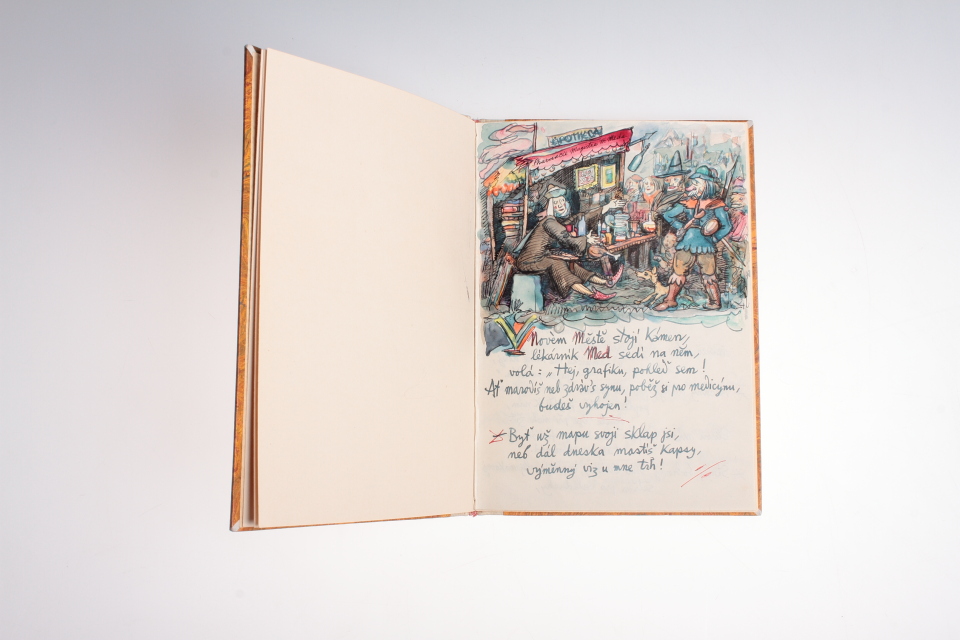 APOTHEKA
V Novém Městě stojí Kámen,
lékárník Med sedí na něm,
volá: „Hej, grafiku, pohleď sem!
Ať marodíš neb zdráv's synu, poběž si pro medicýnu,
budeš vyhojen!
Byť už mapu svoji sklap jsi,
neb dál dneska mastíš kapsy,
výměnný viz u mne trh!